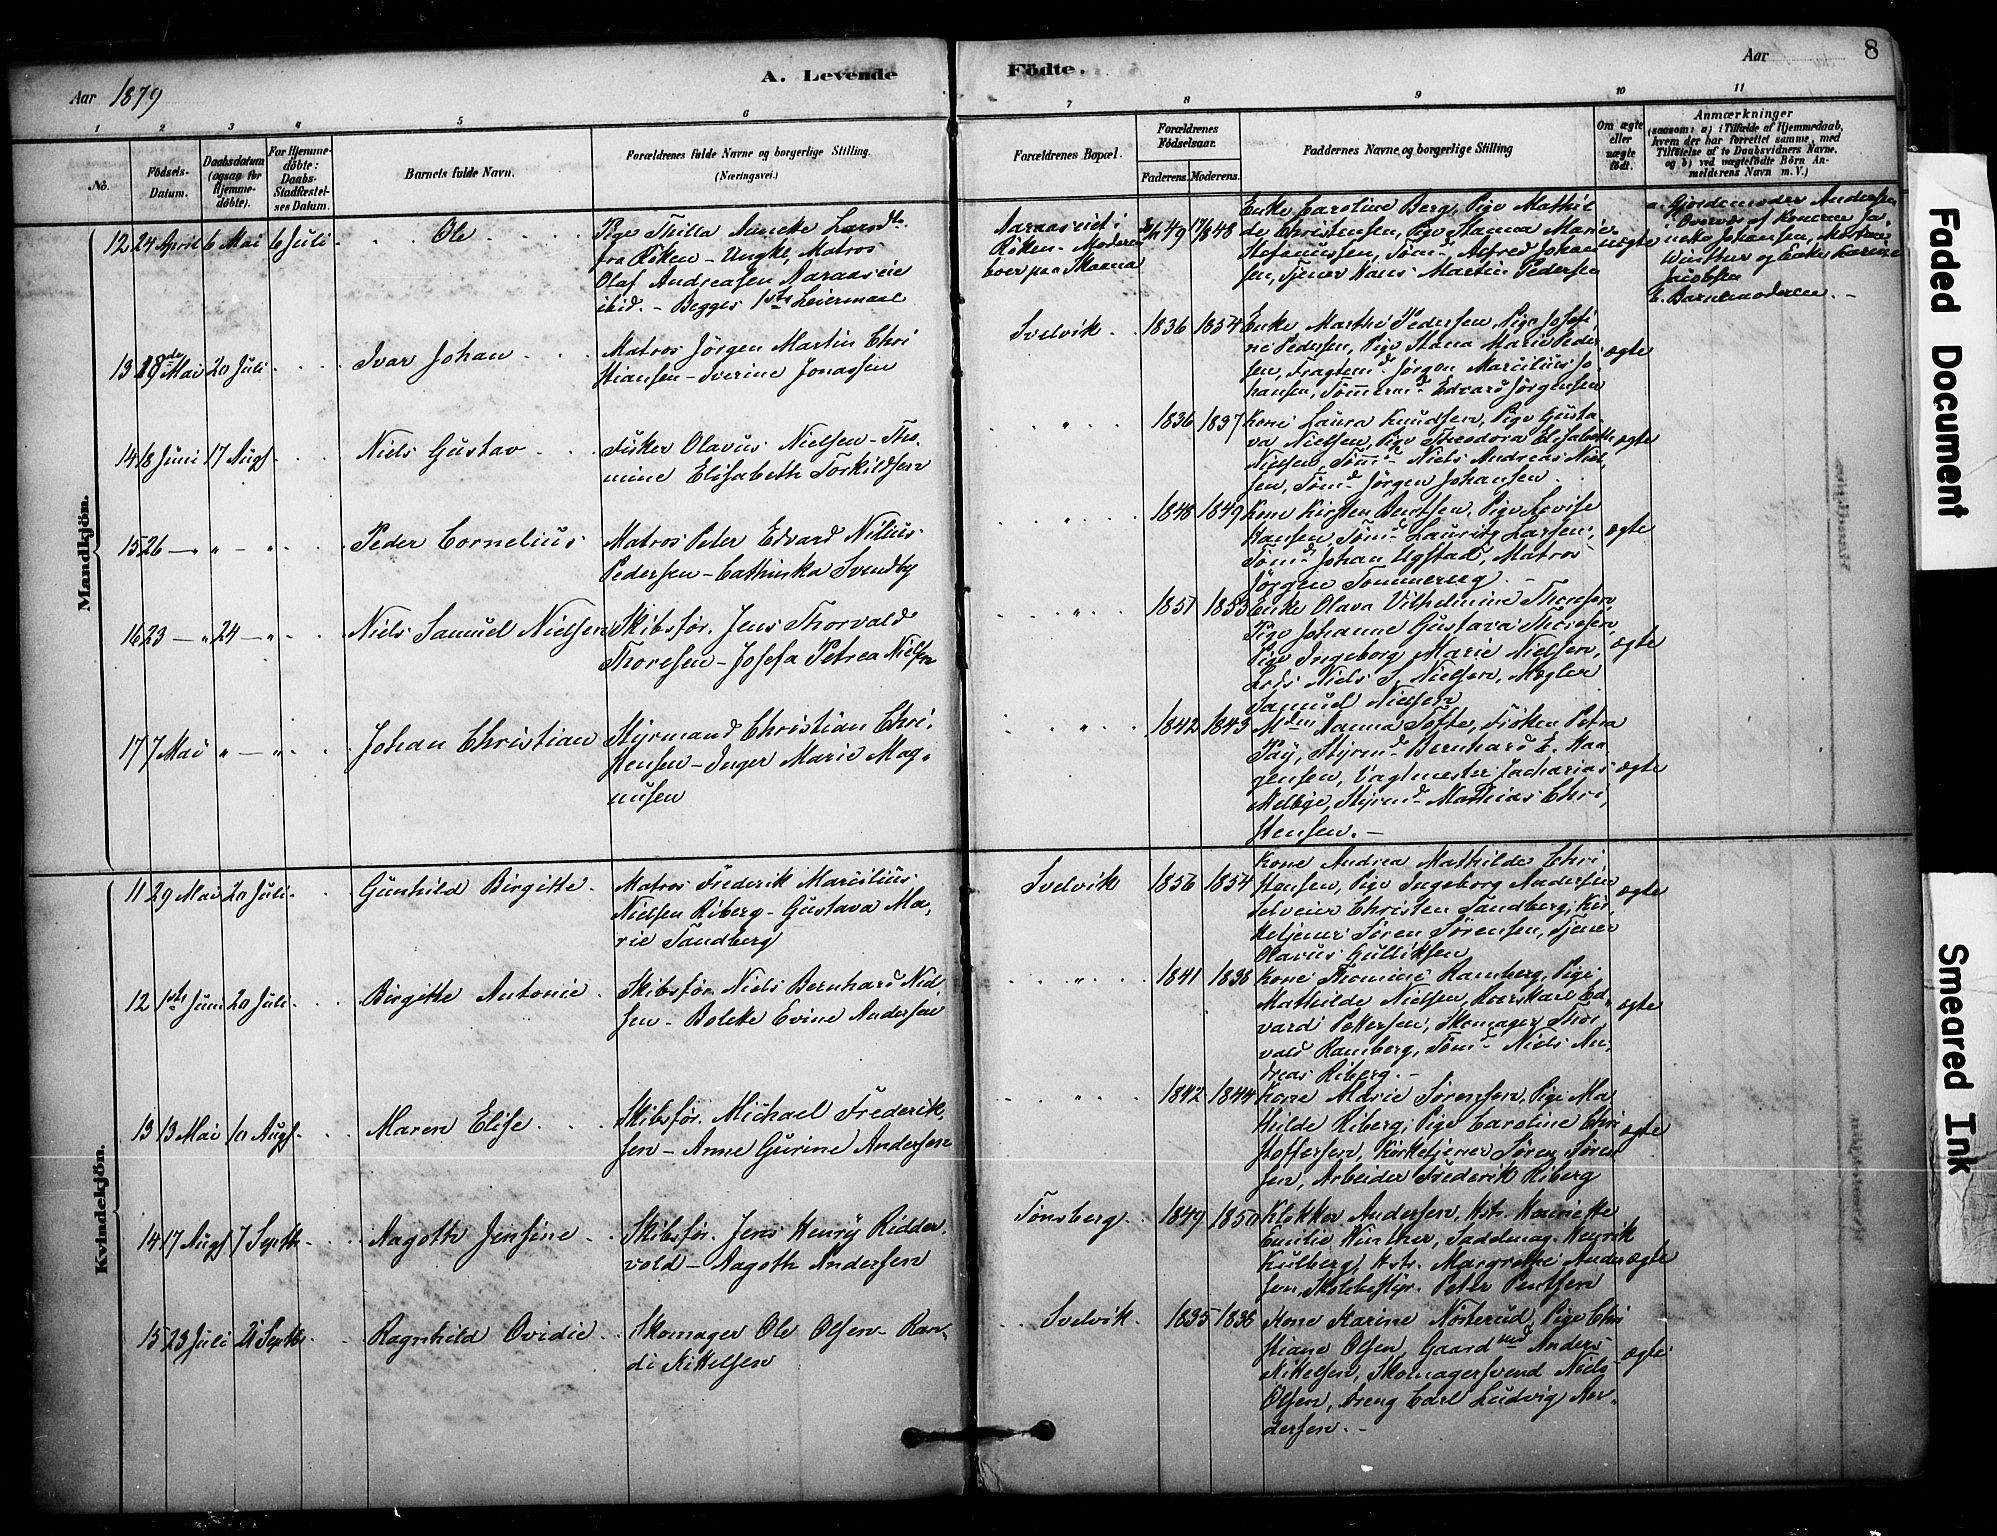 8
A. Levende Födte.
Aar 1879
Aar
1 2 3 4 5 6 7 8 9 10 11
No.
Födsels-Datum.
Daabsdatum (ogsaa for Hjemme-döbte).
For Hjemme-döbte: Daabs-Stadfæstel-ses Datum.
Barnets fulde Navn.
Forældrenes fulde Navne og borgerlige Stilling.
(Næringsvei.)
Forældrenes Bopæl.
Forældrenes Födselsaar.
Faderens. Moderens.
Faddernes Navne og borgerlige Stilling
Om ægte eller uægte født.
Anmærkninger
(saasom: a) i Tilfælde af Hjemmedaab,
hvem der har forrettet samme, med
Tilføielse af to Daabsvidners Navne,
og b) ved uægtefödte Börn An-
melderens Navn m. V.)
Mandkjön.
12 24 April 6 Mai 6 Juli
Ole
Pige Thilla Annette Larsdtr
fra Röken - Ungkl. Matros
Olaf Andreasen Aaraaseie
ibid. - Begges 1ste Leiermaal
Aaraaseiet i
Röken - Moderen
boer paa
49 48
Enke Caroline Berg, Pige Mathil
de Christensen, Pige Hanna Marie
Stefanussen, Tömd Alfred Johan
sen, Tjener Hans Martin Pedersen
uægte
a. Gjordemoder Andersen
Overvær af Konerne Ja
Johansen,
Winther og Enke Karine
Jacobsen
b. Barnemoderen. -
13 18de Mai 20 Juli
Ivar Johan
Matros Jörgen Martin Chri
stiansen - Iverine Jonassen
Svelvik
1836 1834
Enke Marthe Pedersen, Pige Josefi
ne Pedersen, Pige Hana Marie Peder
sen, Fragtemd Jörgen Marcilius Jo-
hansen, Tömmermd Edvard Jörgensen
ægte
14 18 Juni 17 Augs
Niels Gustav
Fisker Olavus Nielsen - Tho
mine Elisabeth Torkildsen
"
1836 1837
Kone Laura Knudsen, Pige Gusta
va Nielsen, Pige Theodora Elisabeth
Nielsen, Tömd Niels Andreas Niel
sen, Tömd Jörgen Johansen
ægte
15 26 — " " — "
Peder Cornelius
Matros Peter Edvard Nilius
Pedersen - Cathinka Svendby
"
1848 1849
Kone Kirsten Berntsen, Pige Lovise
Hansen, Tömd Lauritz Larsen,
Tömd Johan Ugstad, Matros
Jörgen Tommeraeg. -
ægte
16 23 — " 24 — "
Niels Samuel Nielsen
Skibsför. Jens Thorvald
Thoresen - Josefa Petrea Nielsen
"
1851 1853
Enke Olava Vilhelmine Thoresen
Pige Johanne Gustava Thoresen
Pige Ingeborg Marie Nielsen,
Lods Niels S. Nielsen, Mægler
Samuel Nielsen
ægte
17 7 Mai " — "
Johan Christian
Styrmand Christian Chri
stensen - Inger Marie Mag-
nusen
"
1842 1843
Mdm Nanna Tofte, Fröken Petra
Pay, Styrmd Bernhard E. Haa
gensen, Vagtmester Zacharias
Melbye, Styrmd Mathias Chri
stensen. -
ægte
Kvindekjön.
11 29 Mai 20 Juli
Gunhild Birgitte
Matros Frederik Marcilius
Nielsen Riberg - Gustava Ma,
rie Sandberg
Svelvik
1856 1854
Kone Andrea Mathilde Chri
stensen, Pige Ingeborg Andersen
Selveier Christen Sandberg, Kir
ketjener Sören Sörensen, Tjener
Olavus Gulliksen
ægte
12 1ste Juni 20 Juli
Birgitte Antonie
Skibsför. Niels Bernhard Niel
sen - Bolette Evine Andersen
"
1841 1838
Kone Thomine Ramberg, Pige
Mathilde Nielsen, Roerskarl Ed,
vard Pettersen, Skomager Thor
vald Ramberg, Tömd Niels An,
dreas Riberg. -
ægte
13 13 Mai 10 Augs
Maren Elise
Skibsför. Michael Frederik,
sen - Anne Gurine Andersen
"
1842 1844
Kone Marie Sörensen, Pige Ma
thilde Riberg, Pige Caroline Chri
stoffersen, Kirketjener Sören Sören
sen, Arbeider Frederik Riberg
ægte
14 17 Augs 7 Septbr
Aagoth Jensine
Skibsför. Jens Henry Ridder
vold - Aagoth Andersen
Tönsberg
1849 1850
Klokker Andersen, Hstr. Henriette
Emilie Winther, Sadelmag. Henrik
Kulberg, Hstr. Margrethe Ander
sen, Skolebestyr. Peter Pentsen
ægte
15 23 Juli 21 Septbr
Ragnhild Ovidie
Skomager Ole Olsen - Ran,
di Kittelsen
Svelvik
1835 1838
Kone Karine Nösterud, Pige Chri
stiane Olsen, Gaardmd Anders
Kittelsen, Skomagersvend Niels
Olsen, Dreng Carl Ludvig An-
dersen. -
ægte
Faded Document
Smeared Ink